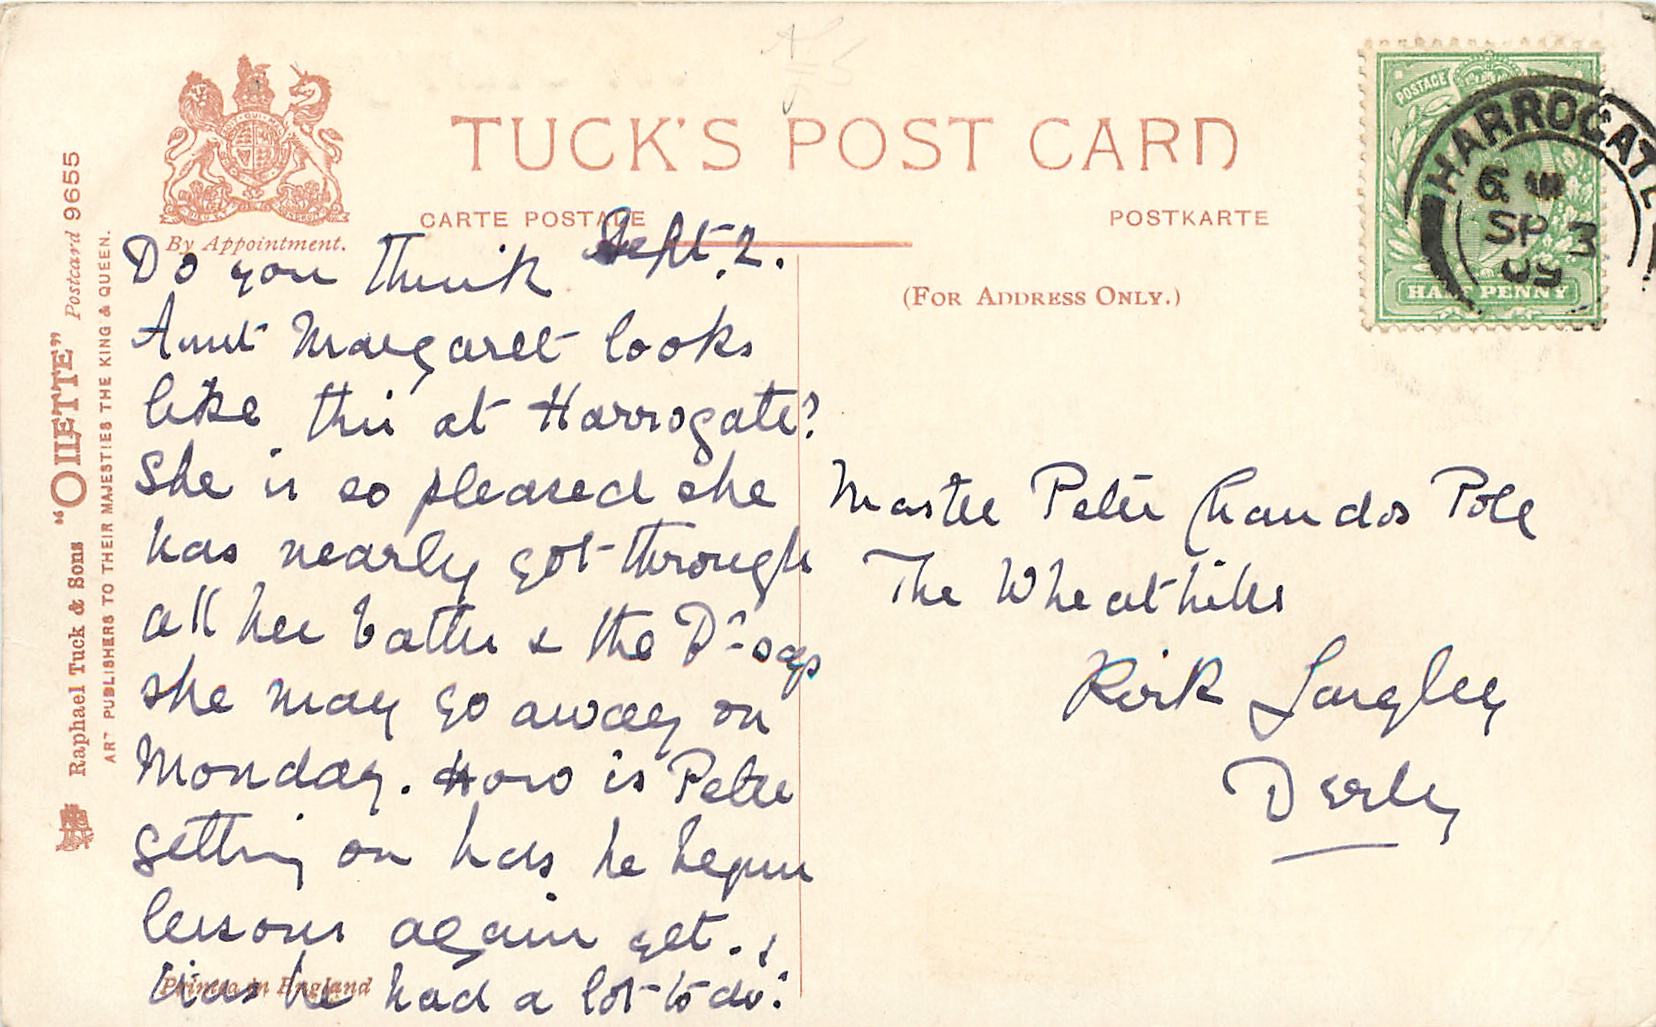 TUCK'S POST CARD
CARTE POSTALE
POSTKARTE
By Appointment.
(FOR ADDRESS ONLY.)
Raphael Tuck & Sons "OILETTE" Postcard 9655
ART PUBLISHERS TO THEIR MAJESTIES THE KING & QUEEN.
POSTAGE
HALF PENNY
HARROGATE
SP 3
09
Sept. 2.
Do you think
Aunt Margaret looks
like this at Harrogate?
She is so pleased she
has nearly got through
all her baths & the Dr says
she may go away on
Monday. How is Peter
getting on has he begun
lessons again yet.
Has he had a lot to do?
Printed in England
Master Peter Chandos Pole
The Wheathills
Kirk Langley
Derby